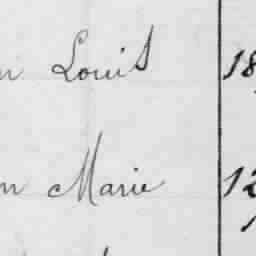 n Louis 18
n Marie 12